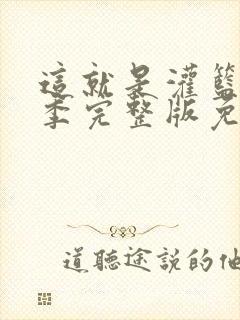 這就是灌籃
季完整版免
道聽途說的他